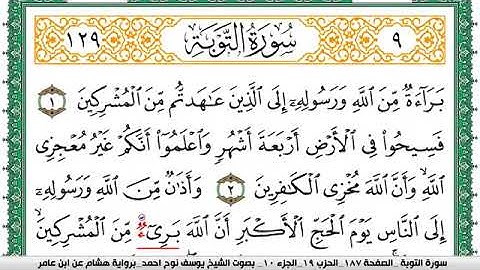 ٩ سُورَةُ التَّوْبَةِ ١٢٩
بَرَآءَةٌ مِّنَ اللَّهِ وَرَسُولِهِۦٓ إِلَى الَّذِينَ عَٰهَدتُّم مِّنَ الْمُشْرِكِينَ ١
فَسِيحُوا۟ فِى الْأَرْضِ أَرْبَعَةَ أَشْهُرٍ وَاعْلَمُوٓا۟ أَنَّكُمْ غَيْرُ مُعْجِزِى
اللَّهِ وَأَنَّ اللَّهَ مُخْزِى الْكَٰفِرِينَ ٢ وَأَذَٰنٌ مِّنَ اللَّهِ وَرَسُولِهِۦٓ
إِلَى النَّاسِ يَوْمَ الْحَجِّ الْأَكْبَرِ أَنَّ اللَّهَ بَرِىٓءٌ مِّنَ الْمُشْرِكِينَ
سورة التوبة _ الصفحة ١٨٧_ الحزب ١٩_الجزء ١٠_ بصوت الشيخ يوسف نوح احمد_برواية هشام عن ابن عامر